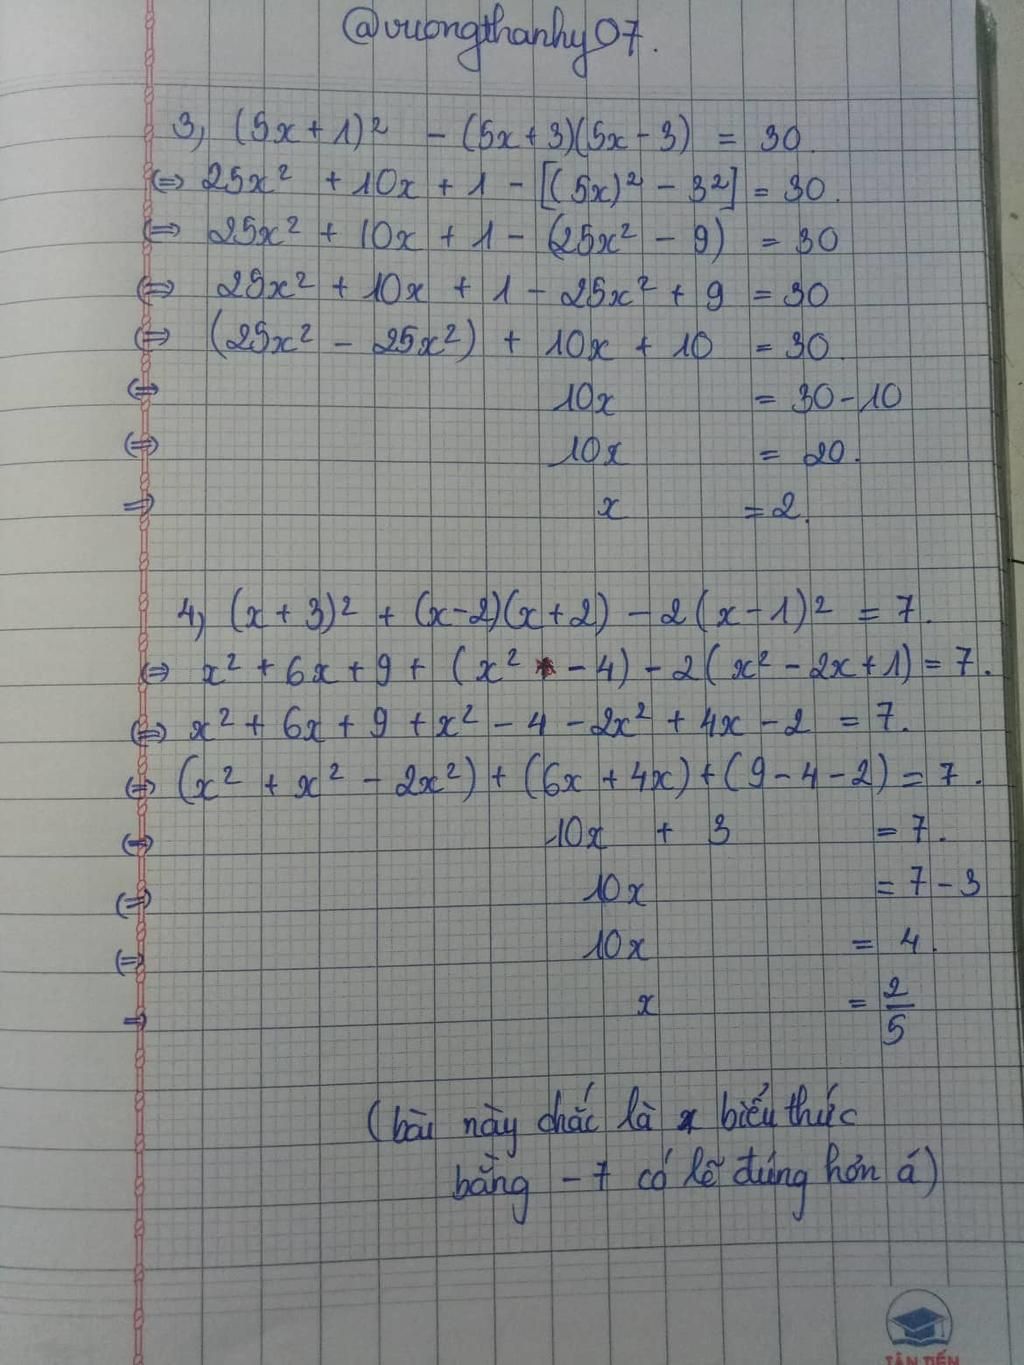 @vuongthanhy07.
3, (5x + 1)² - (5x + 3)(5x - 3) = 30.
⇔ 25x² + 10x + 1 - [(5x)² - 3²] = 30.
⇔ 25x² + 10x + 1 - (25x² - 9) = 30
⇔ 25x² + 10x + 1 - 25x² + 9 = 30
⇔ (25x² - 25x²) + 10x + 10 = 30.
⇔ 10x = 30 - 10
⇔ 10x = 20.
⇒ x = 2.
4, (x + 3)² + (x - 2)(x + 2) - 2(x - 1)² = 7.
⇔ x² + 6x + 9 + (x² - 4) - 2(x² - 2x + 1) = 7.
⇔ x² + 6x + 9 + x² - 4 - 2x² + 4x - 2 = 7.
⇔ (x² + x² - 2x²) + (6x + 4x) + (9 - 4 - 2) = 7.
⇔ 10x + 3 = 7.
⇔ 10x = 7 - 3
⇔ 10x = 4.
⇒ x = 2/5
(bài này chắc là biểu thức
bằng - 7 có lẽ đúng hơn á)
TÂN TIẾN